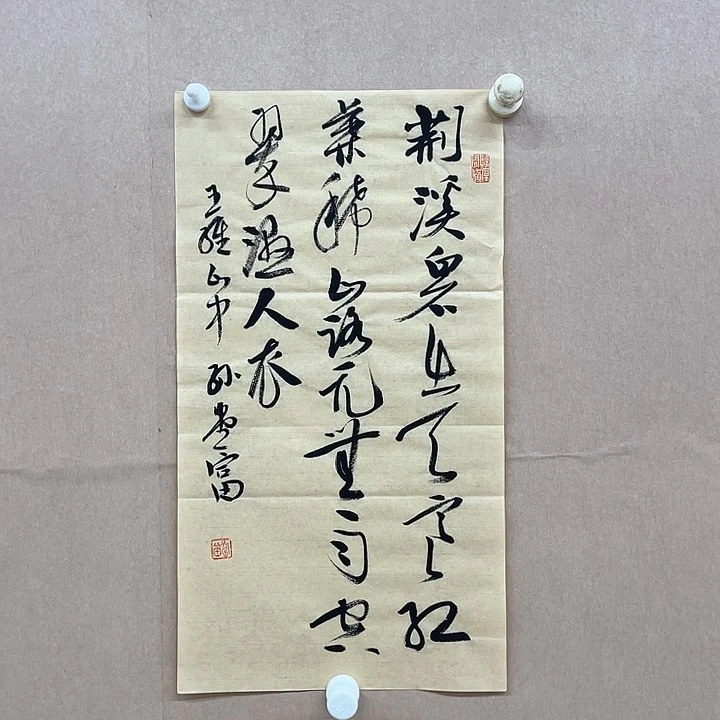 荆溪白石出天寒红
葉稀山路元無雨空
翠濕人衣
王維山中 孙贵富